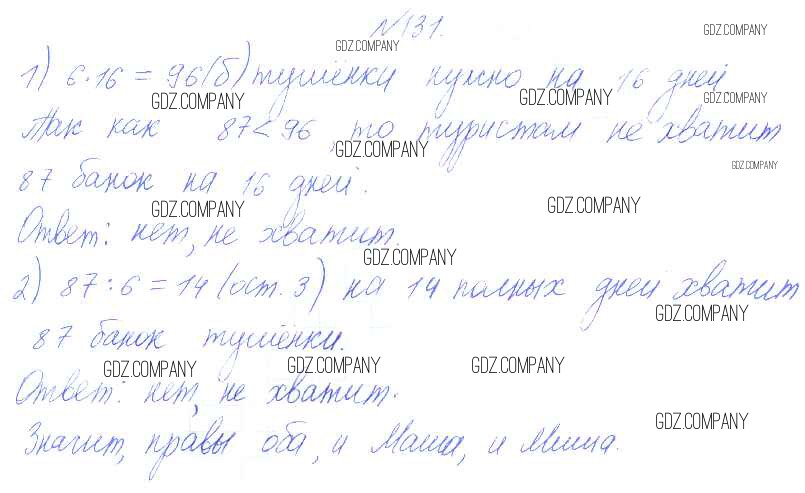 №131.
GDZ.COMPANY GDZ.COMPANY
1) 6·16 = 96(б) тушёнки нужно на 16 дней
GDZ.COMPANY GDZ.COMPANY GDZ.COMPANY
Так как 87<96, то туристам не хватит
GDZ.COMPANY GDZ.COMPANY
87 банок на 16 дней.
GDZ.COMPANY GDZ.COMPANY
Ответ: нет, не хватит.
GDZ.COMPANY
2) 87:6=14 (ост. 3) на 14 полных дней хватит
GDZ.COMPANY
87 банок тушёнки.
GDZ.COMPANY GDZ.COMPANY GDZ.COMPANY
Ответ: нет, не хватит.
GDZ.COMPANY
Значит, правы оба, и Маша, и Миша.